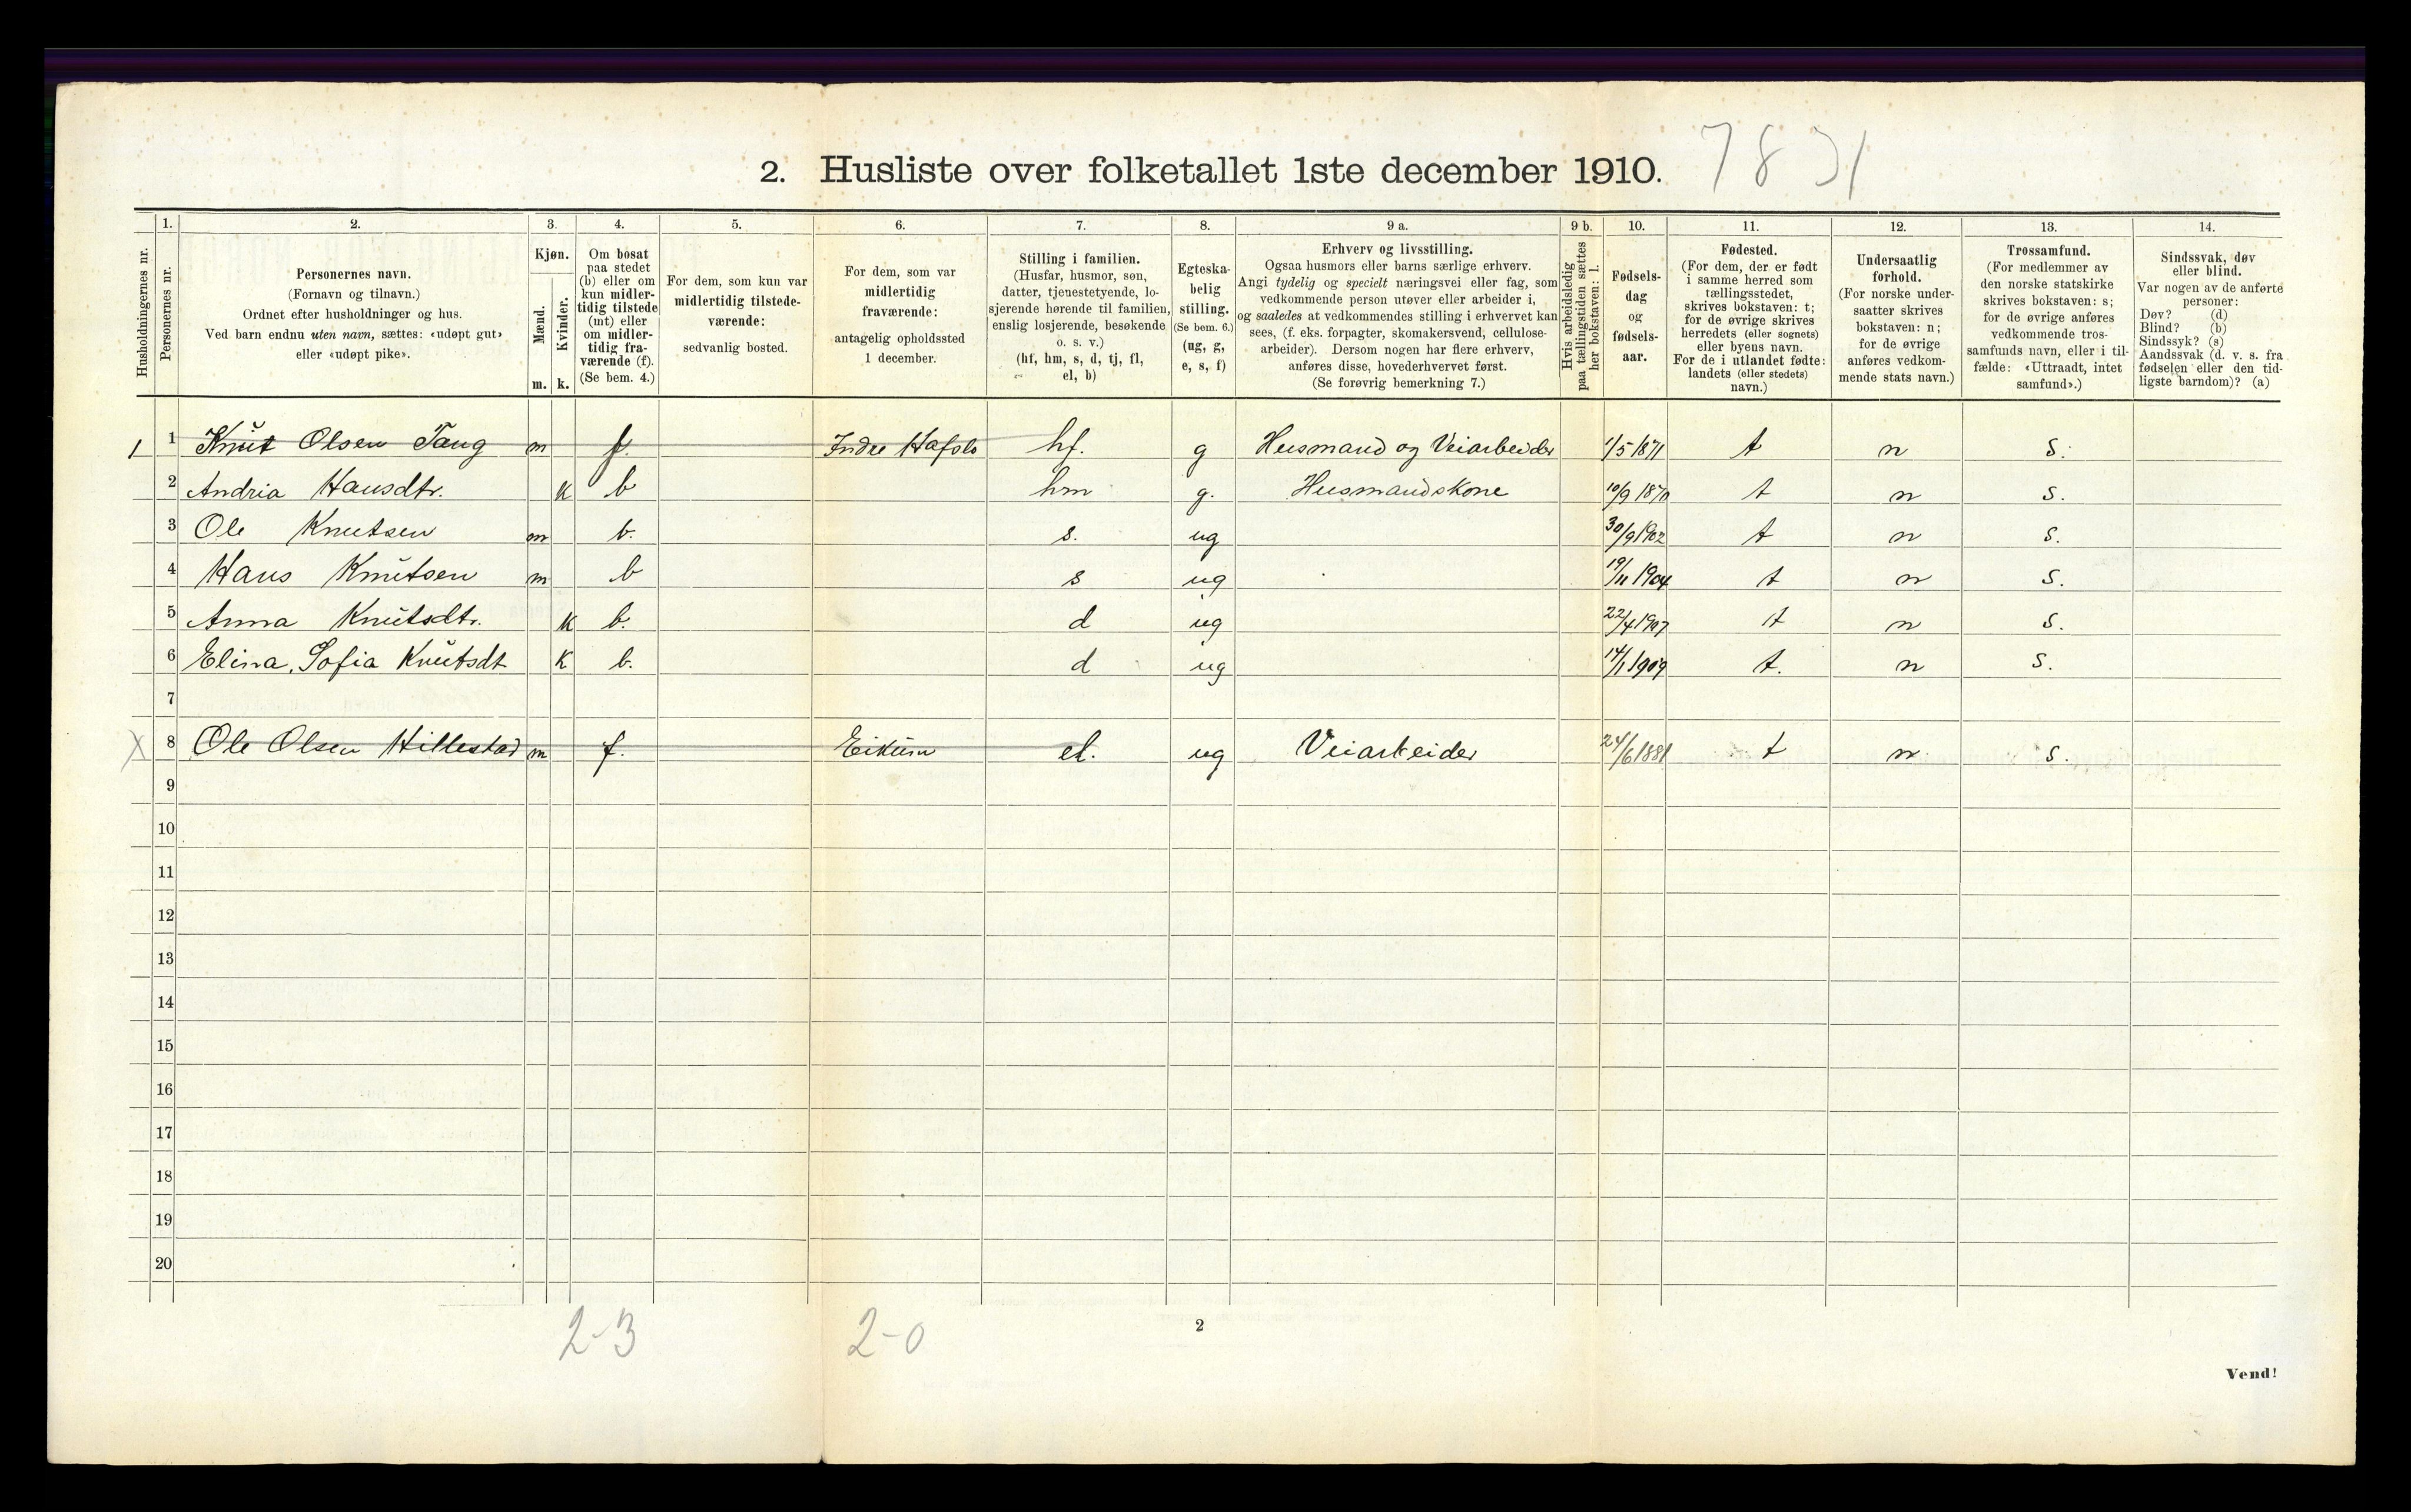 2. Husliste over folketallet 1ste december 1910.
Husholdningernes nr.
1. Personernes nr.
2. Personernes navn.
(Fornavn og tilnavn.)
Ordnet efter husholdninger og hus.
Ved barn endnu uten navn, sættes: «udøpt gut»
eller «udøpt pike».
3. Kjøn.
Mænd. m.
Kvinder. k.
4. Om bosat
paa stedet
(b) eller om
kun midler-
tidig tilstede
(mt) eller
om midler-
tidig fra-
værende (f).
(Se bem. 4.)
5. For dem, som kun var
midlertidig tilstede-
værende:
sedvanlig bosted.
6. For dem, som var
midlertidig
fraværende:
antagelig opholdssted
1 december.
7. Stilling i familien.
(Husfar, husmor, søn,
datter, tjenestetyende, lo-
sjerende hørende til familien,
enslig losjerende, besøkende
o. s. v.)
(hf, hm, s, d, tj, fl,
el, b)
8. Egteska-
belig
stilling.
(Se bem. 6.)
(ug, g,
e, s, f)
9 a. Erhverv og livsstilling.
Ogsaa husmors eller barns særlige erhverv.
Angi tydelig og specielt næringsvei eller fag, som
vedkommende person utøver eller arbeider i,
og saaledes at vedkommendes stilling i erhvervet kan
sees, (f. eks. forpagter, skomakersvend, cellulose-
arbeider). Dersom nogen har flere erhverv,
anføres disse, hovederhvervet først.
(Se forøvrig bemerkning 7.)
9 b. Hvis arbeidsledig
paa tællingstiden sættes
her bokstaven: l.
10. Fødsels-
dag
og
fødsels-
aar.
11. Fødested.
(For dem, der er født
i samme herred som
tællingsstedet,
skrives bokstaven: t;
for de øvrige skrives
herredets (eller sognets)
eller byens navn.
For de i utlandet fødte:
landets (eller stedets)
navn.)
12. Undersaatlig
forhold.
(For norske under-
saatter skrives
bokstaven: n;
for de øvrige
anføres vedkom-
mende stats navn.)
13. Trossamfund.
(For medlemmer av
den norske statskirke
skrives bokstaven: s;
for de øvrige anføres
vedkommende tros-
samfunds navn, eller i til-
fælde: «Uttraadt, intet
samfund».)
14. Sindssvak, døv
eller blind.
Var nogen av de anførte
personer:
Døv? (d)
Blind? (b)
Sindssyk? (s)
Aandssvak (d. v. s. fra
fødselen eller den tid-
ligste barndom)? (a)
1 1 Knut Olsen Tang m f. Indre Hafslo hf. g Husmand og Veiarbeider 1/5 1871 t n s.
2 Andria Hansdtr. k b hm g. Husmandskone 10/9 1870 t n s.
3 Ole Knutsen m b. s. ug 30/9 1902 t n s.
4 Hans Knutsen m b s ug 19/11 1904 t n s.
5 Anna Knutsdtr. k b. d ug 22/4 1907 t n s.
6 Elina Sofia Knutsdt k b. d ug 14/1 1909 t. n s.
7
X 8 Ole Olsen Hillestad m f. Eikum el. ug Veiarbeider 24/6 1881 t n s.
9
10
11
12
13
14
15
16
17
18
19
20
2-3 2-0
2
Vend!